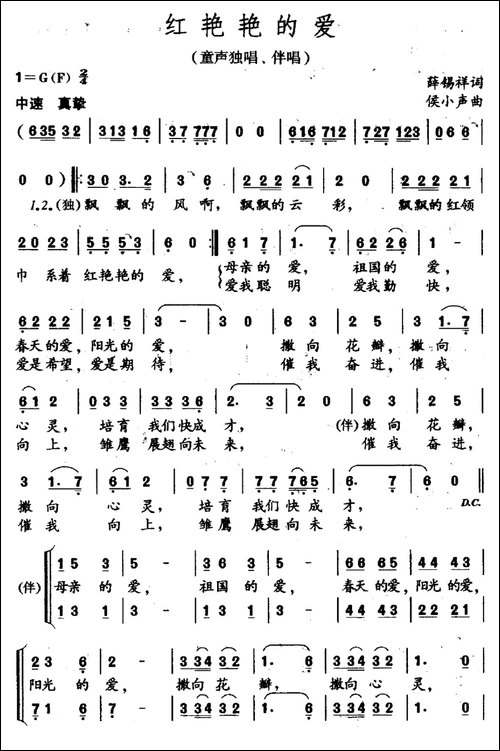 红艳艳的爱
(童声独唱、伴唱)
1=G(F) 2/4
薛锡祥词
中速 真挚
侯小声曲
(635 32 | 313 1 6 | 37 777 | 0 0 | 616 712 | 727 123 |
0 0 ) ‖: 3 0 3. 2 | 3 6 | 2 2 2 2 2 | 2 0 | 2 2 2 2 2 1 |
1.2.(独)飘飘的风啊,飘飘的云彩,飘飘的红领
2 0 2 3 | 5 5 5 5 3 | 6 0 :‖ 6 1 7 | 1. 7 | 6 2 2 6 |
巾 系着 红艳艳的 爱, 母亲的 爱, 祖国的 爱,
爱我聪明 爱我勤快,
6 2 2 2 | 2 1 5 | 3 - | 3 0 | 6 3 | 2 5 | 3 1. 7 |
春天的爱,阳光的 爱, 撒向 花瓣,撒向
爱是希望,爱是期 待, 催我 奋进,催我
6 1 2 | 0 3 3 | 3 3 3 6 | 2. 3 | 2 0 | 6 3 | 2 5 |
心灵, 培育 我们快成 才, (伴)撒向 花瓣,
向上, 雏鹰 展翅向未 来, 催我 奋进,
3 1. 7 | 6 1 2 | 0 7 7 | 7 7 7 6 5 | 6. 6 | 6 0 ‖
撒向 心灵, 培育 我们快成 才,
D.C.
催我 向上, 雏鹰 展翅向未 来,
1 5 3 | 2 - | 3 6 3 | 5 - | 6 6 6 5 | 4 4 4 3 |
(伴) 母亲的 爱, 祖国的 爱, 春天的爱,阳光的爱,
1 3 1 | 2 - | 1 3 1 | 3 - | 4 4 4 3 | 2 2 2 1 |
2 3 6 | 2 - | 3 3 4 3 2 | 1. 6 | 3 3 4 3 2 | 1. 0 |
阳光的 爱, 撒向花 瓣, 撒向心 灵,
7 1 6 | 7 - | 3 3 4 3 2 | 1. 6 | 3 3 4 3 2 | 1. 0 |